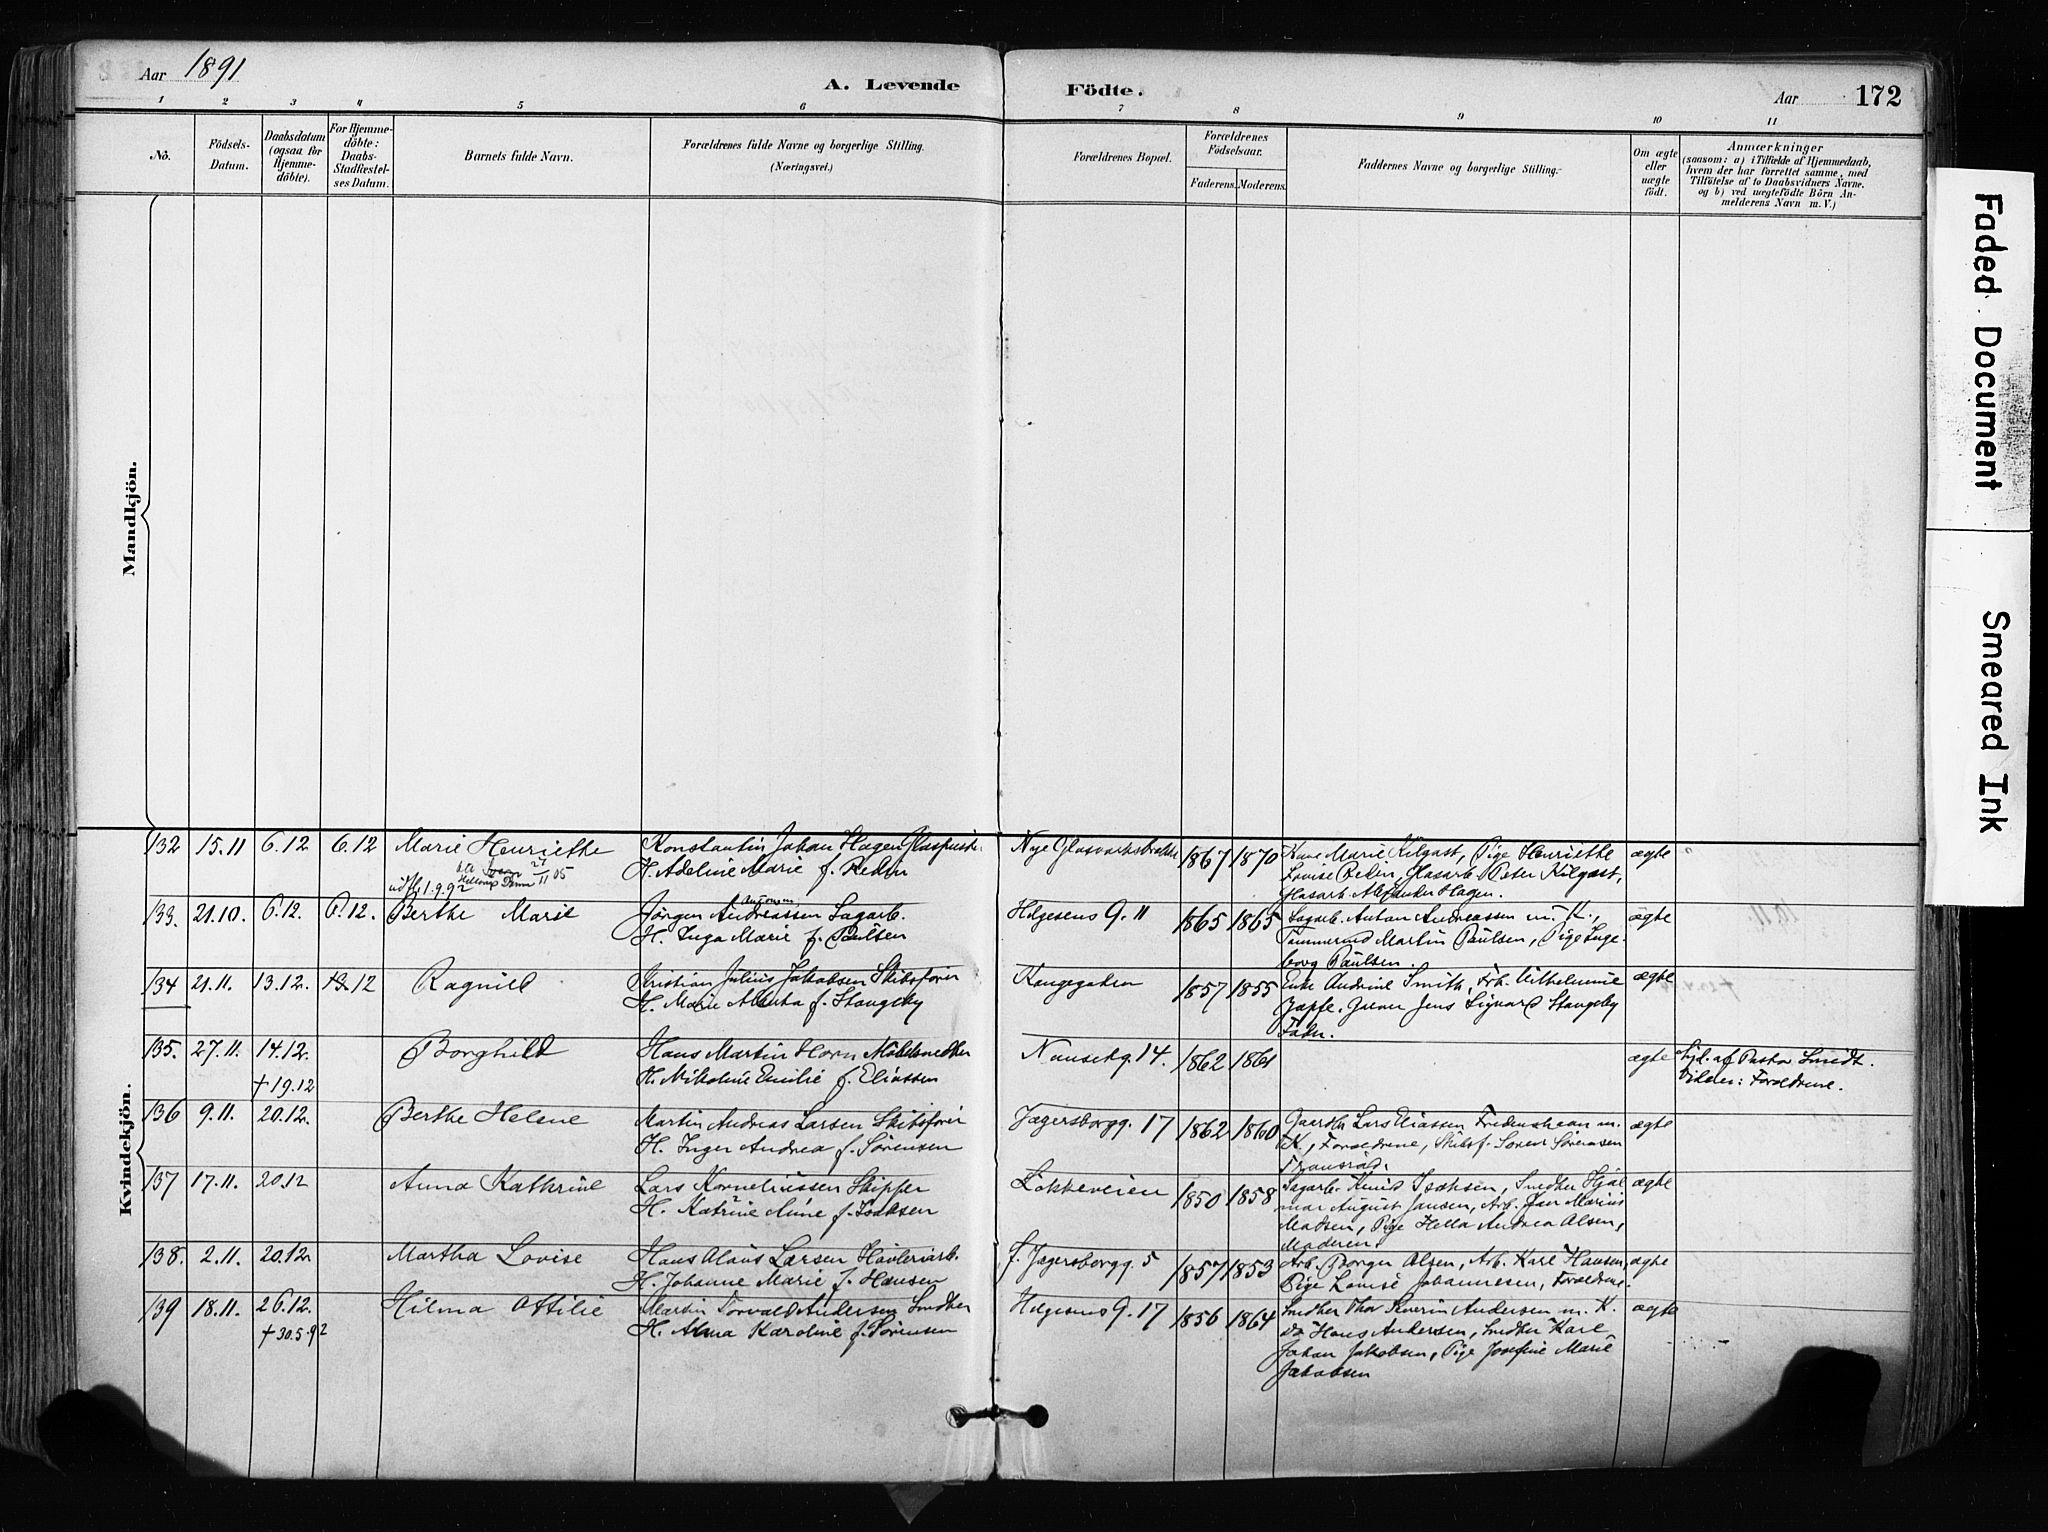 Aar 1891
A. Levende
Födte.
Aar
172
1 2 3 4 5 6 7 8 9 10 11
Nô.
Födsels-
Datum.
Daabsdatum
(ogsaa for
Hjemme-
döbte).
For Hjemme-
döbte:
Daabs-
Stadfæstel-
ses Datum.
Barnets fulde Navn.
Forældrenes fulde Navne og borgerlige Stilling.
(Næringsvei.)
Forældrenes Bopæl.
Forældrenes
Födselsaar.
Faderens. Moderens.
Faddernes Navne og borgerlige Stilling.
Om ægte
eller
uægte
födt.
Anmærkninger
(saasom: a) i Tilfælde af Hjemmedaab,
hvem der har forrettet samme, med
Tilföielse af to Daabsvidners Navne.
og b) ved uægtefödte Börn An-
melderens Navn m. V.)
Mandkjön.
Kvindekjön.
132 15.11 6.12 6.12 Marie Henriethe
Konstantin Johan Hagen
H. Adeline Marie f.
1867 1870
Marie Kilgast, Pige Henriethe
Lovise Glasarb. Peter Kilgast,
Glasarb. Hagen.
ægte
133. 21.10. 6.12. 6.12. Berthe Marie
Jörgen Andreassen Sagarb.
H. Inga Marie f. Paulsen
Helgesens G. 11
1865 1865
Sagarb. Anton Andreassen m. K.,
Tømmermd Martin Paulsen, Pige Inge-
borg Paulsen.
ægte
134 21.11. 13.12. 12 Ragnild
Kristian Julius Jakobsen Skibsfører
H. Marie f. Stangeby
Kongegaden
1857 1855
Enke Andrine Smith, Frk. Vilhelmine
Jens Sigvard Stangeby
Fader.
ægte
135. 27.11. 14.12.
+ 19.12
Borghild
Hans Martin Horn Møbelsnedker
H. Nikoline Emilie f. Eliassen
Nansetg. 14.
1862 1861
ægte
Hjd. af Pastor Smidt.
Vidner: Forældrene.
136 9.11. 20.12. Berthe Helene
Martin Andreas Larsen Skibsfører
H. Inger Andrea f. Sørensen
Jægersborgg. 17
1862 1860
Lars Eliassen Fredensteen m.
K, Forældrene, Skibsf. Sören Sörensen
ægte
137 17.11. 20.12 Anna Kathrine
Lars Korneliussen Skipper
H. Katrine Mine f. Isaksen
Løkkeveien
1850 1858
Sagarb. Knud Isaksen, Snedker Hjal
mar August Jansen, Arb. Jan Marius
Madsen, Pige Hella Andrea Olsen,
Moderen.
ægte
138. 2.11. 20.12 Martha Lovise
Hans Olaus Larsen Høvleriarb.
H. Johanne Marie f. Hansen
f. Jægersborgg. 5
1857 1853
Arb. Borger Olsen, Arb. Karl Hansen,
Pige Lovise Johannesen, Forældrene.
ægte
139 18.11. 26.12.
+ 30.5.92
Hilma Ottilie
Martin Torvald Andersen Snedker
H. Anna Karoline f. Sørensen
Helgesens G. 17
1856 1864
Snedker Thor Severin Andersen m. K.
Do Hans Andersen, Snedker Karl
Johan Jakobsen, Pige Josefine Marie
Jakobsen
ægte
Faded Document
Smeared Ink